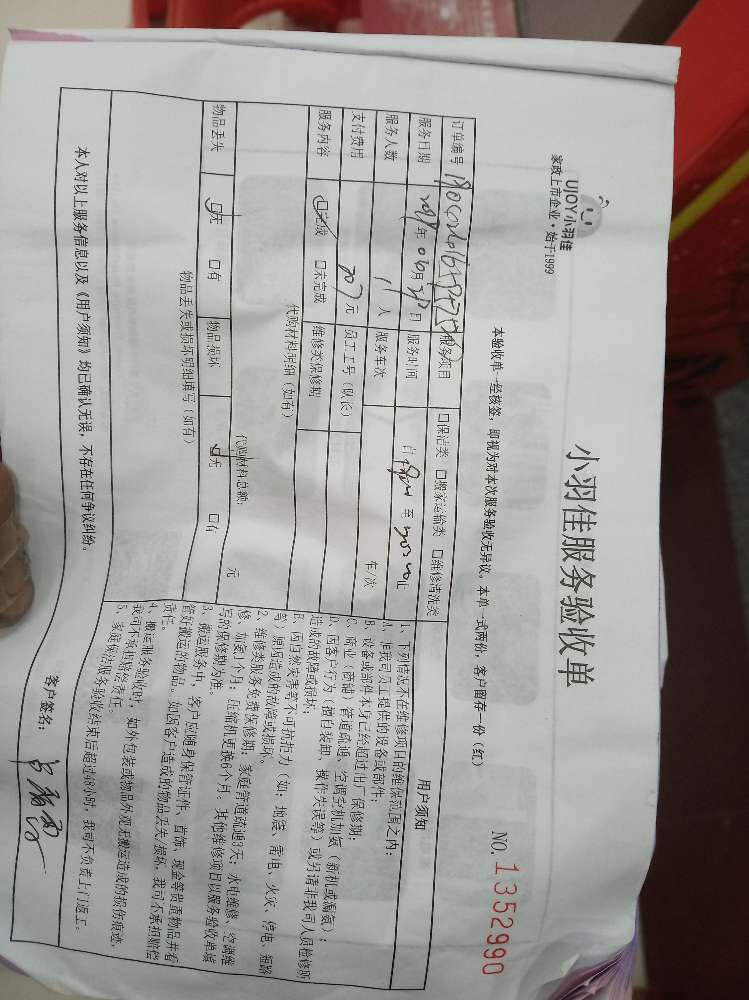 UJOY小羽佳
家政上市企业·始于1999
小羽佳服务验收单
NO. 1352990
本验收单一经核签，即视为对本次服务验收无异议，本单一式两份，客户留存一份（红）
订单编号 服务项目 □保洁类 □搬家运输类 □维修清洗类
服务日期 年 06月 日 服务时间 自 至 止
服务人数 1 人 服务车次 车/次
支付费用 207 元 员工工号（队长）
服务内容 ☑完成 □未完成 维修类保修期
代购材料明细（如有）
代购材料总额： 元
物品丢失 ☑无 □有 物品损坏 ☑无 □有
物品丢失或损坏明细填写（如有）
用户须知
1、下列情况不在维修项目的维保范围之内：
A、非我司员工提供的设备或部件；
B、设备或部件本身已经超过出厂保修期；
C、商业（商铺）管道疏通、空调空机加氨（新机或漏氨）；
D、因客户行为（擅自装卸、操作失误等）或另请非我司人员检修所
造成的故障或损坏；
E、因自然灾害等不可抗拒力（如：地震、雷电、火灾、停电、短路
等）原因造成的故障或损坏。
2、维修类服务免费保修期：家庭管道疏通3天；水电维修、空调维
修、加氨1个月；压缩机更换6个月。其他维修项目以服务验收单填
写的保修期为准。
3、搬运服务中，客户应随身保管证件、首饰、现金等贵重物品并看
管好搬运的物品。如因客户造成的物品丢失、损坏，我司不承担赔偿
责任。
4、搬运服务验收时，如外包装或物品外观无搬运造成的损伤痕迹，
我司不承担赔偿责任。
5、家庭保洁服务验收结束后超过48小时，我司不负责上门返工。
本人对以上服务信息以及《用户须知》均已确认无误，不存在任何争议纠纷。
客户签名：